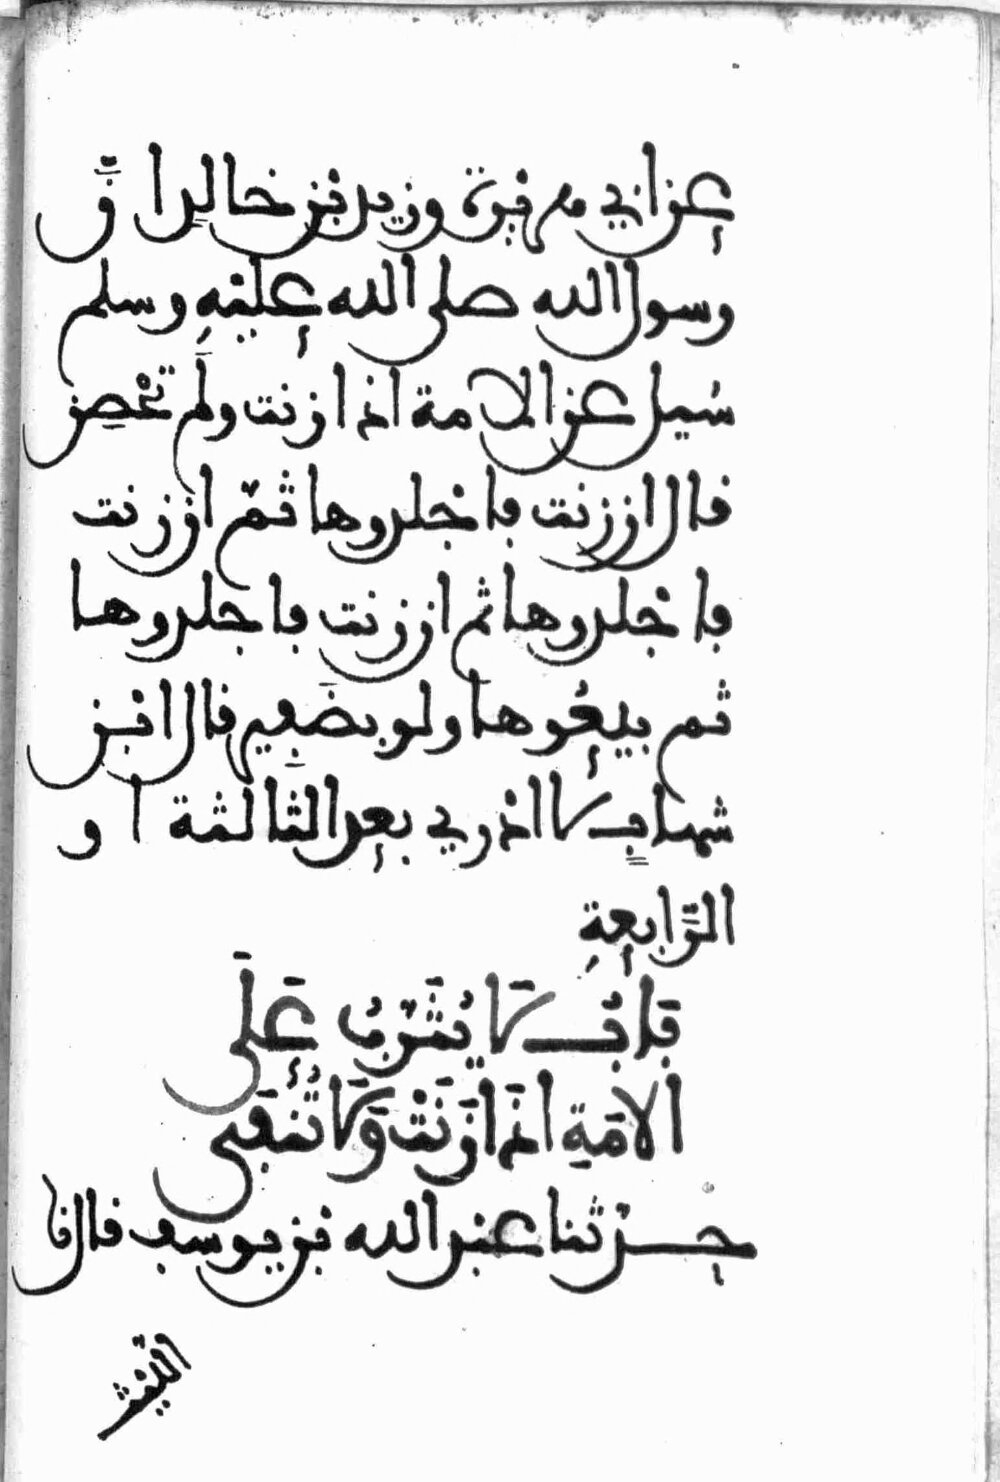 عن ابي هريرة وزيد بن خالد ان
رسول الله صلى الله عليه وسلم
سيل عن الامة اذا زنت ولم تحصن
قال ان زنت فاجلدوها ثم ان زنت
فاجلدوها ثم ان زنت فاجلدوها
ثم بيعوها ولو بضفير قال ابن
شهاب لا ادري بعد الثالثة او
الرّابعةِ
بَابُ لَا يُثَرَّبُ عَلَى
الامَةِ اذَا زَنَتْ وَلَا تُنْفَى
حدثنا عبد الله بن يوسف قال نا
الليث